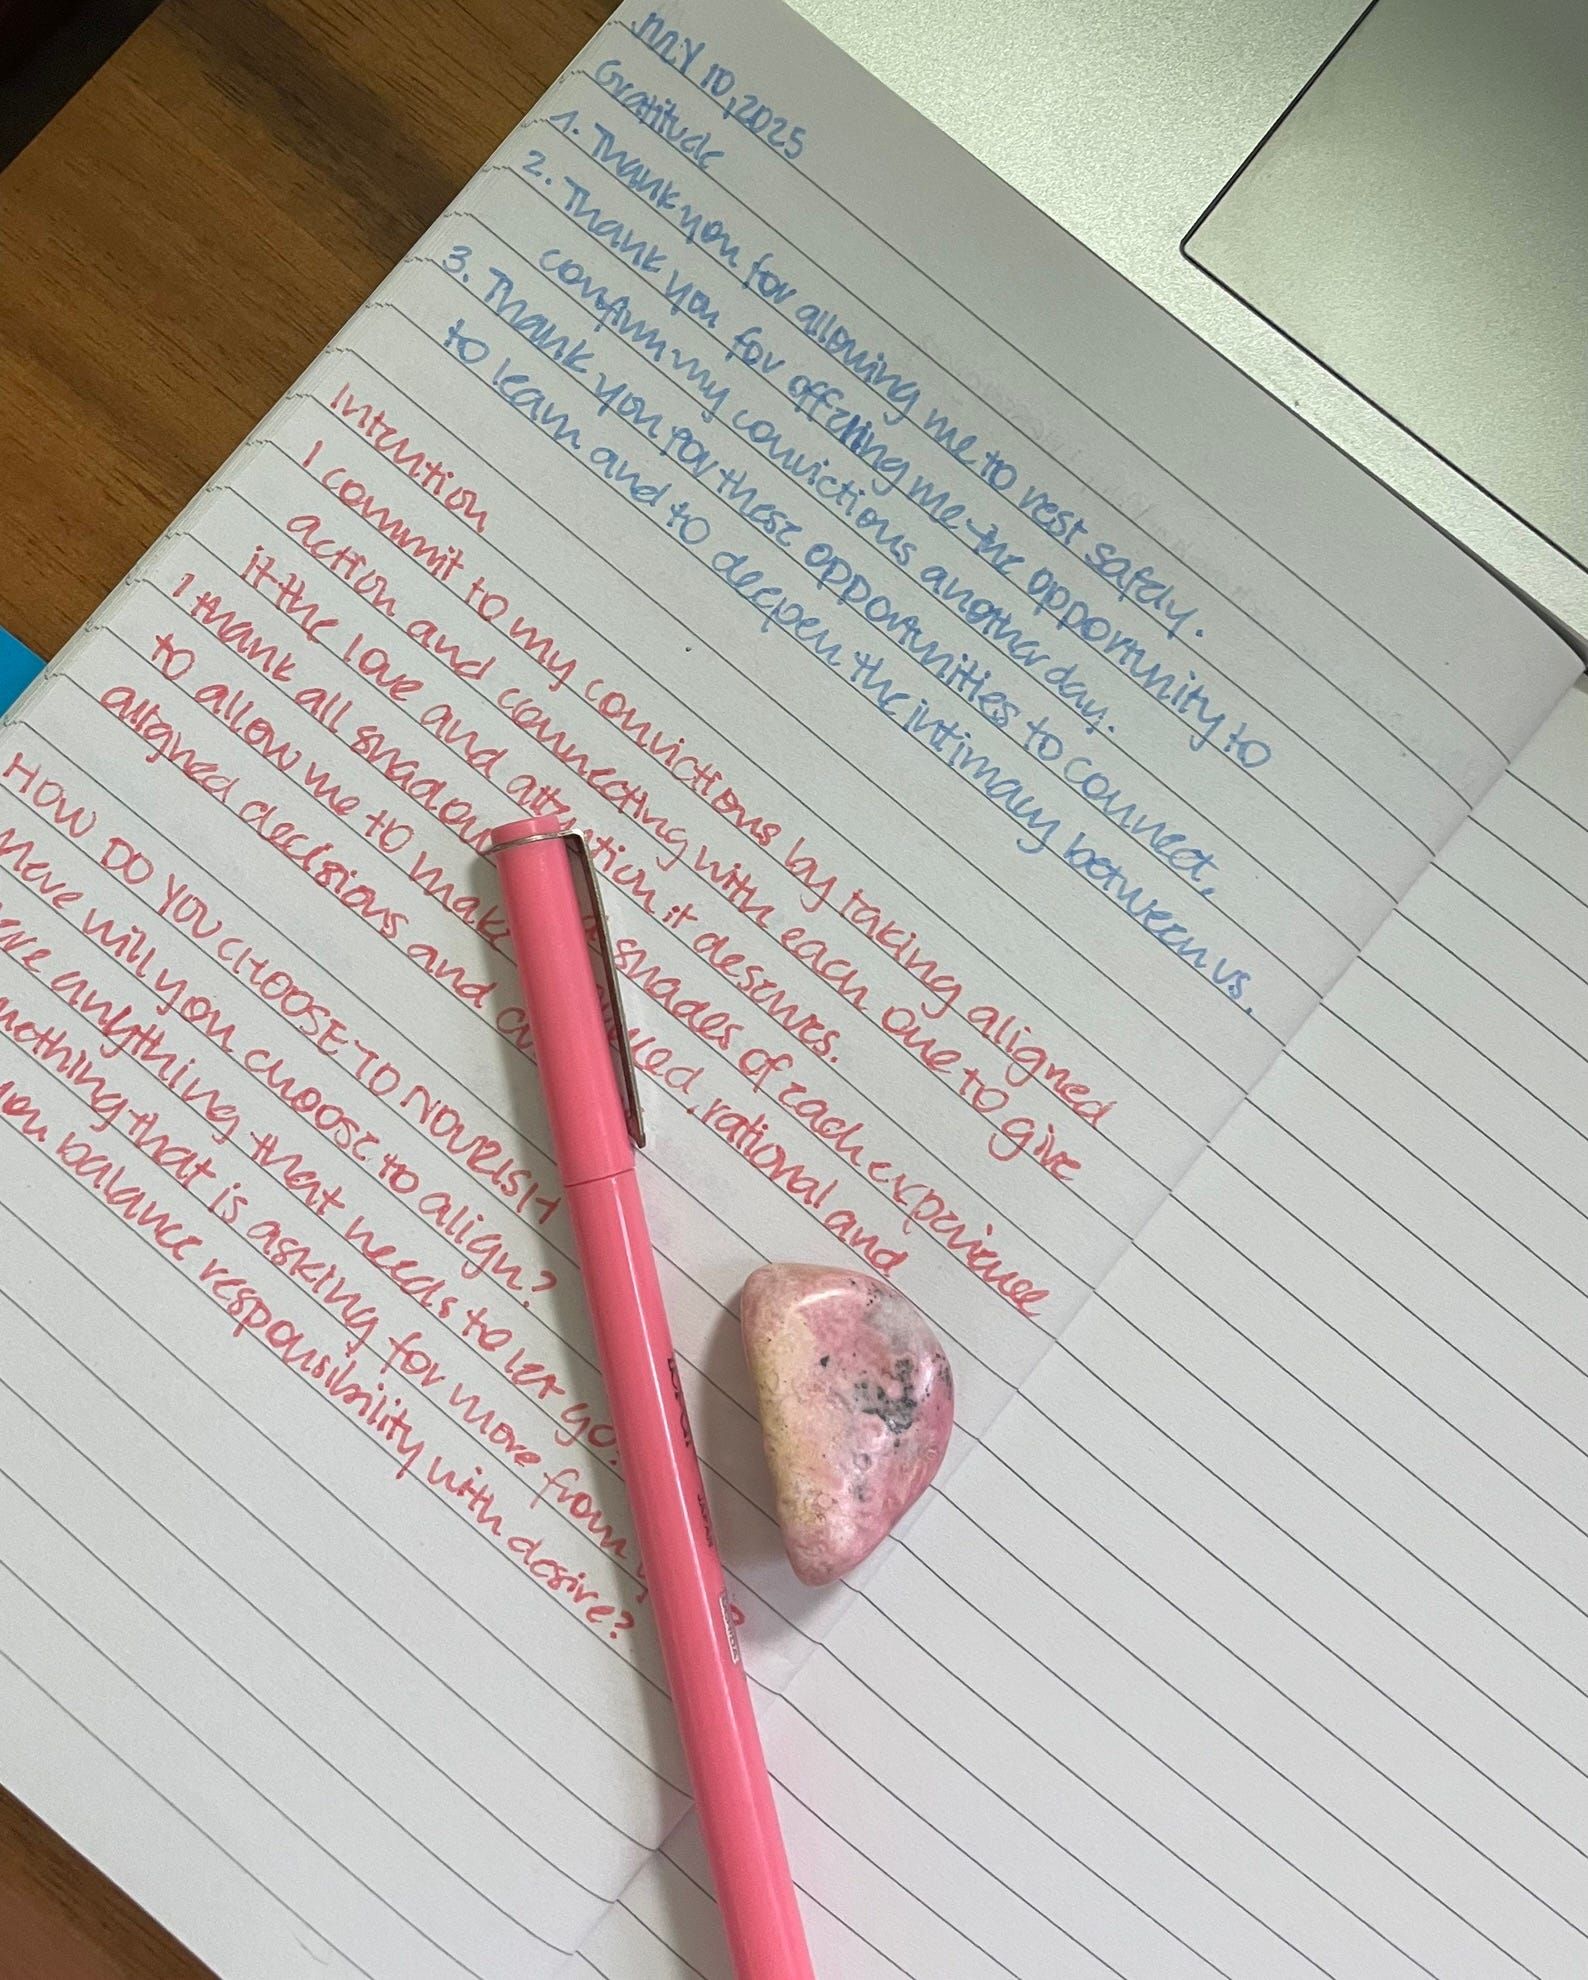 MAY 10, 2025
Gratitude
1. Thank you for allowing me to rest safely.
2. Thank you for offering me the opportunity to
confirm my convictions another day.
3. Thank you for these opportunities to connect,
to learn and to deepen the intimacy between us.
Intention
I commit to my convictions by taking aligned
action and connecting with each one to give
it the love and attention it deserves.
I thank all shadows shades of each experience
to allow me to make rational and
aligned decisions and
HOW DO YOU CHOOSE TO NOURISH
will you choose to align?
anything that needs to let go?
nothing that is asking for more from
you balance responsibility with desire?
JAPAN